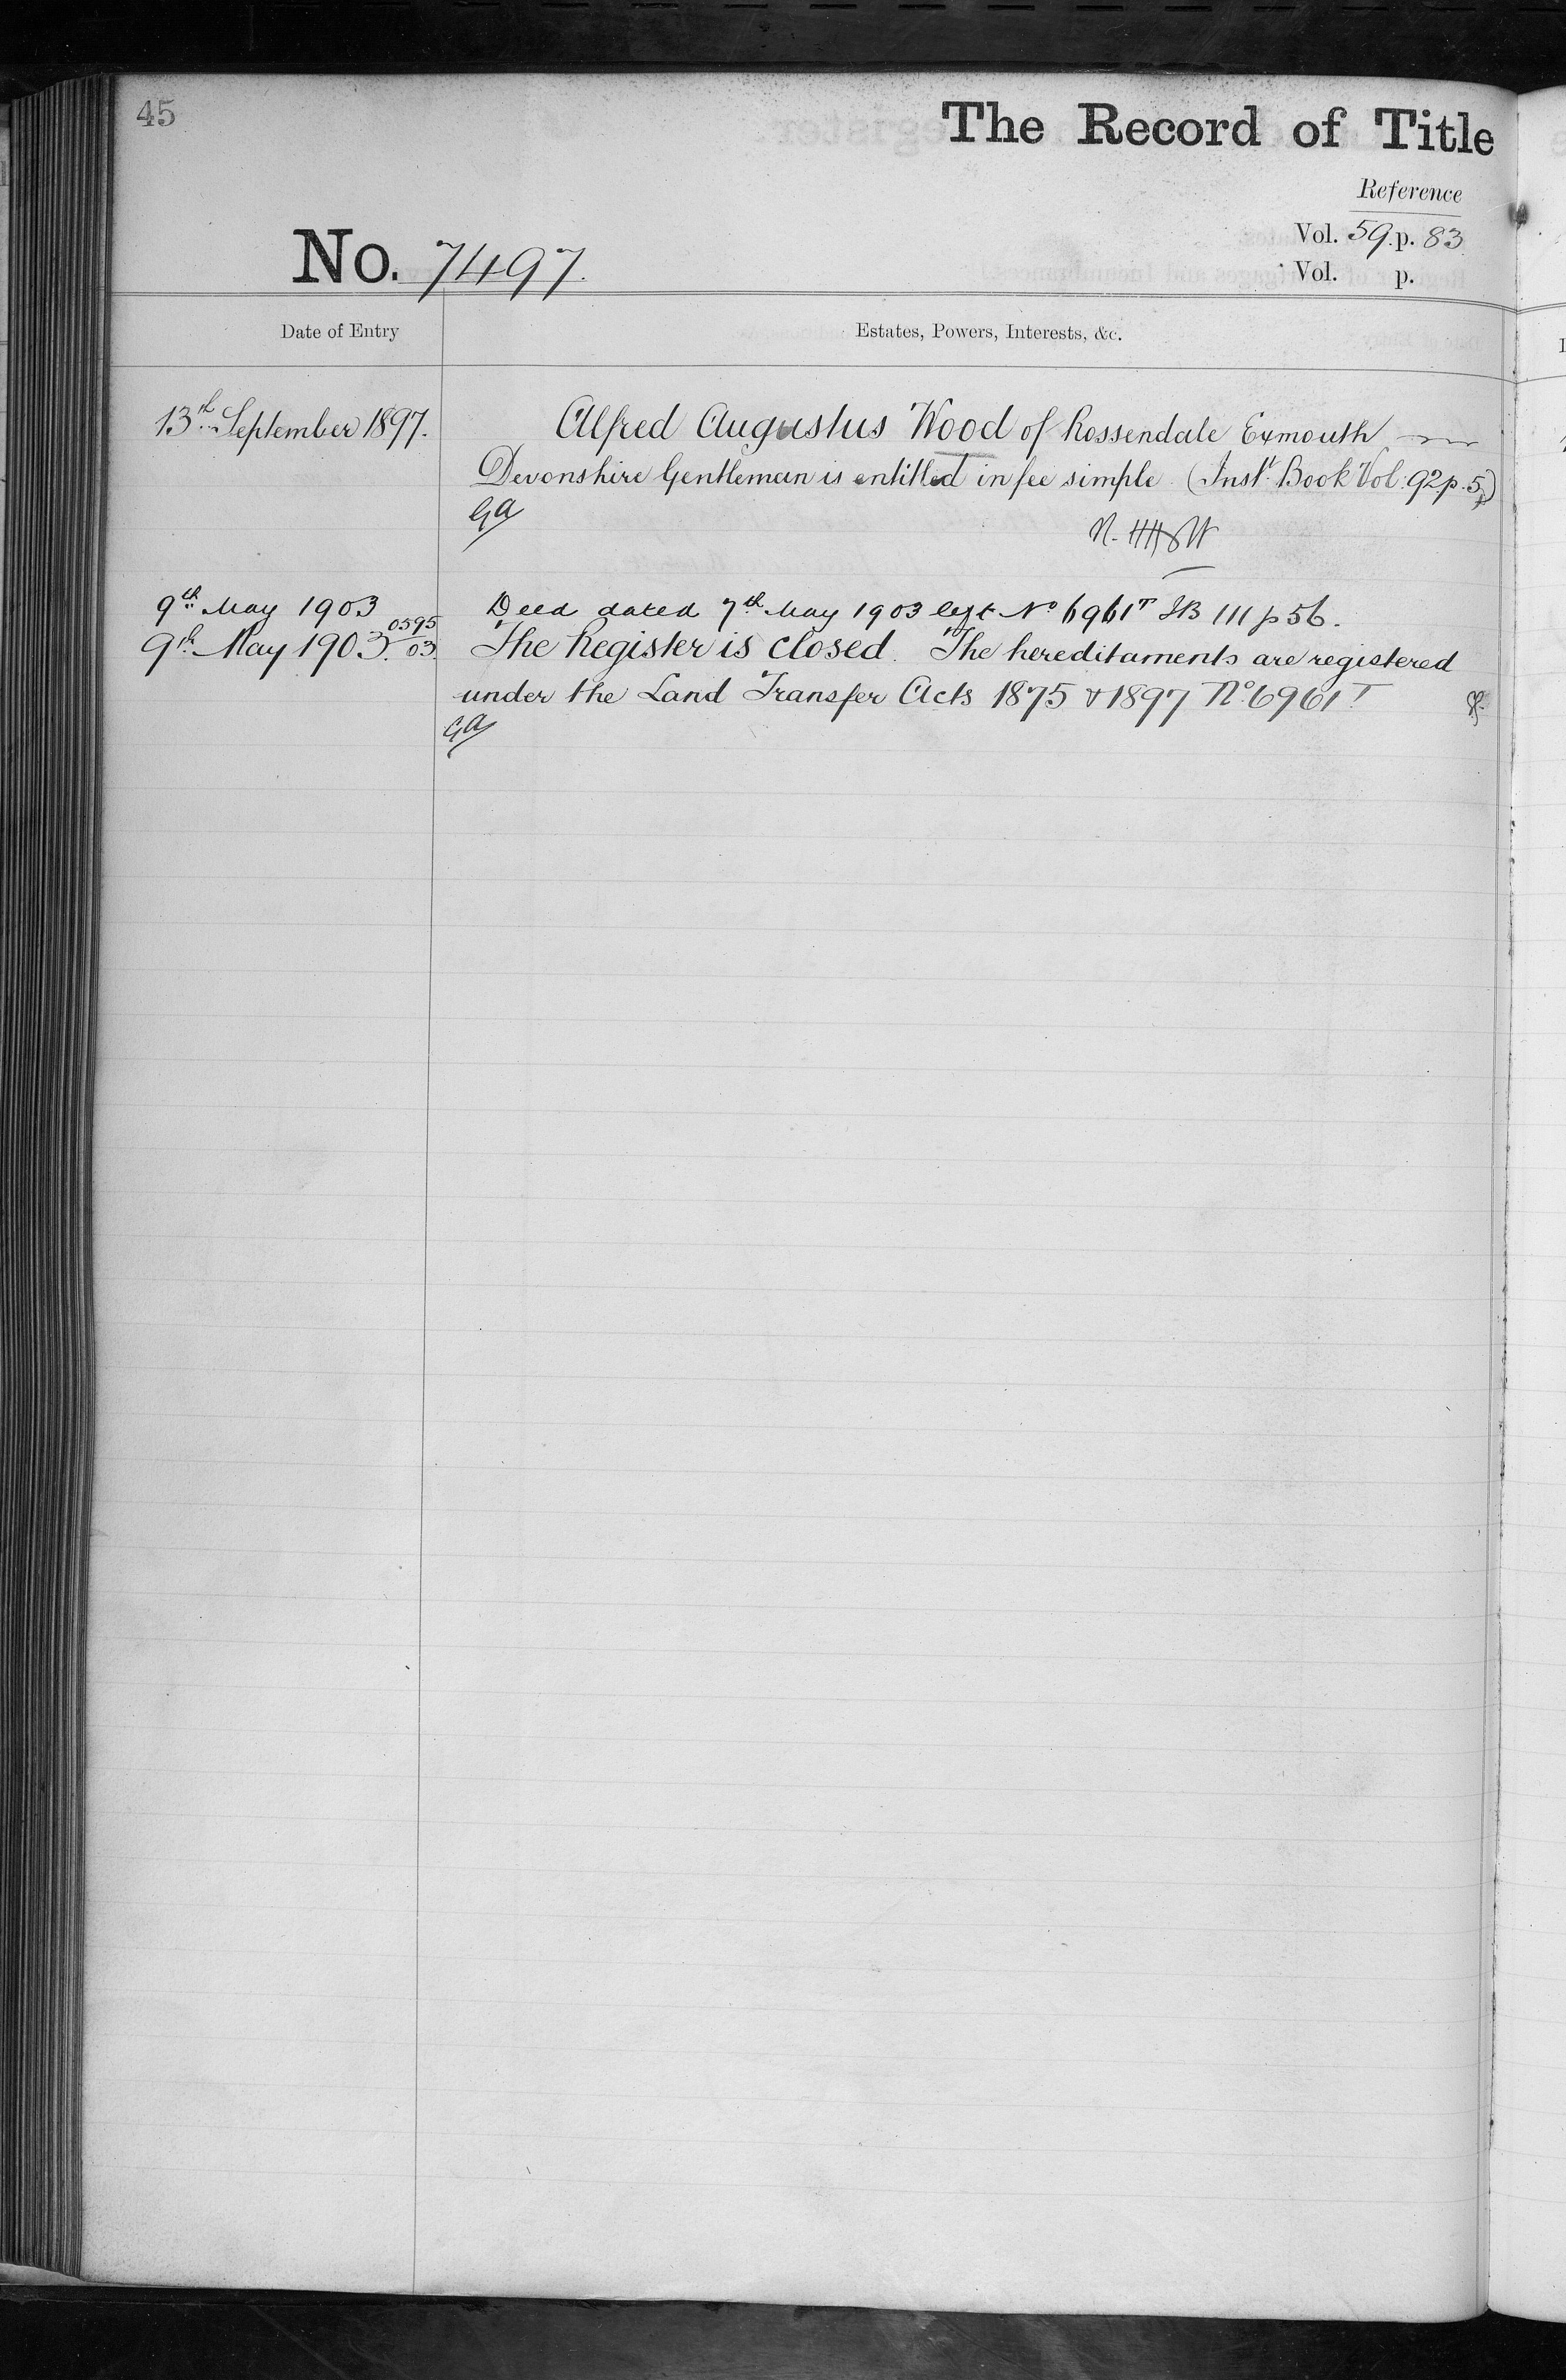 45
The Record of Title
Reference
Vol. 59. p. 83
Vol. p.
No. 7497.
Date of Entry
Estates, Powers, Interests, &c.
13th September 1897.
Alfred Augustus Wood of Rossendale Exmouth
Devonshire Gentleman is entitled in fee simple (Inst. Book Vol. 92 p. 5)
GA
9th May 1903
Deed dated 7th May 1903 left No 6961T IB 111 p 56.
0595
9th May 1903. 03.
The Register is closed. The hereditaments are registered
under the Land Transfer Acts 1875 & 1897 No. 6961T
GA